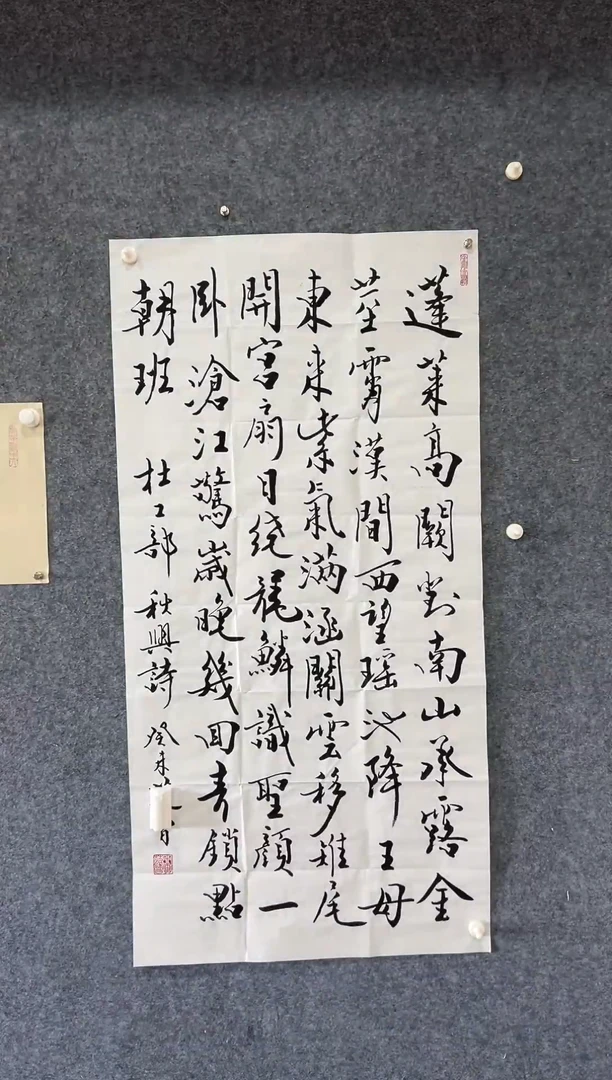 蓬萊高闕對南山承露金
莖霄漢間西望瑶池降王母
東來紫氣滿涵關雲移雉尾
開宮扇日绕龍鱗識聖顔一
卧滄江驚歲晚幾回青鎖點
朝班 杜工部 秋興詩 癸未